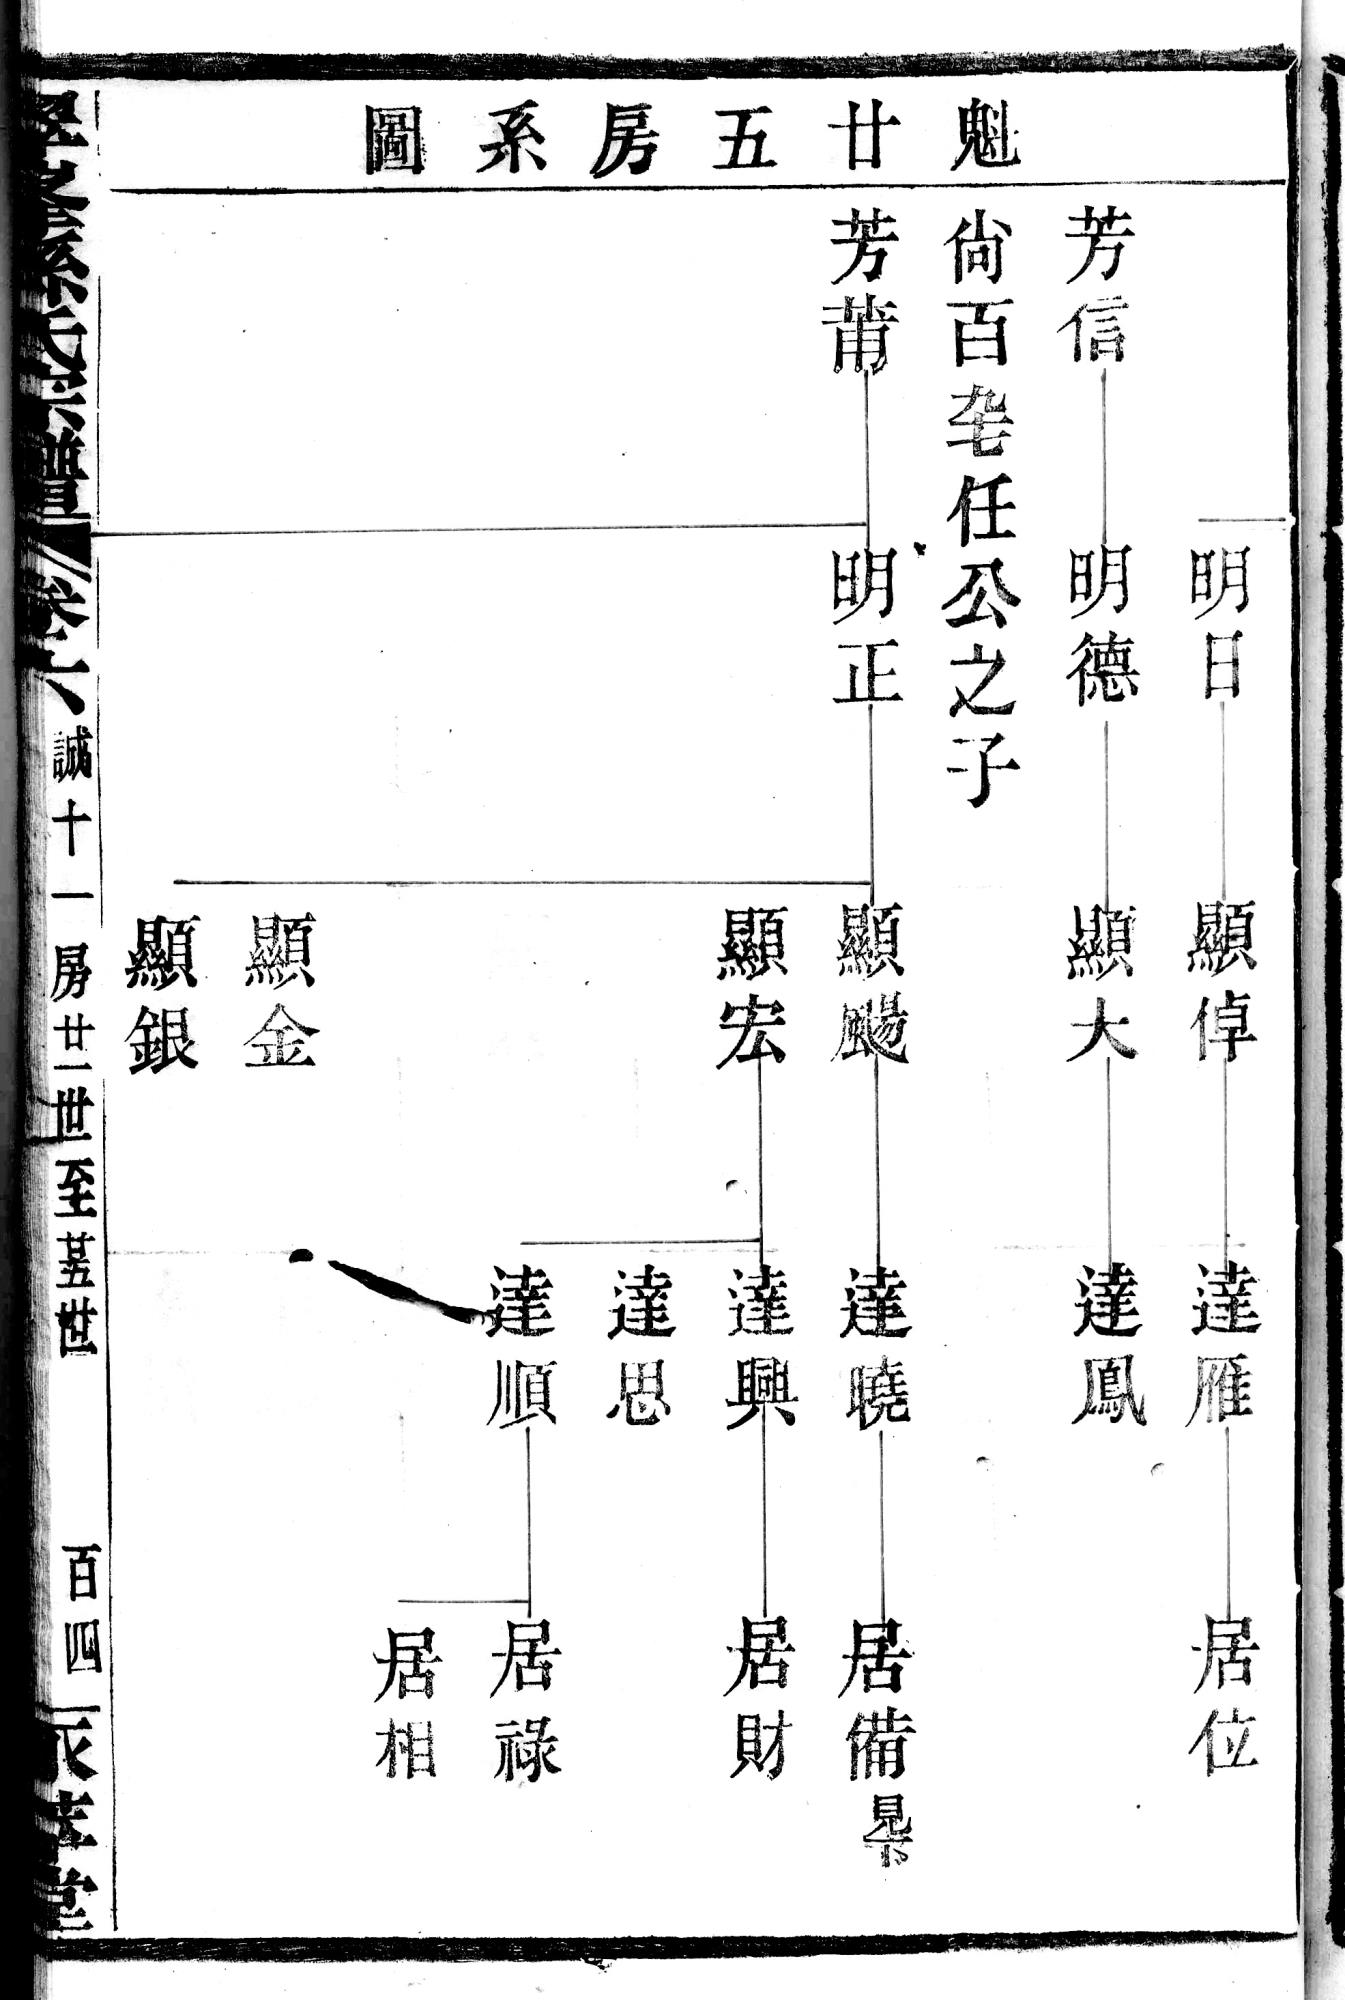 魁廿五房系圖
明日
顯倬
達雁
居位
芳信
明德
顯大
達鳳
尙百任公之子
芳莆
明正
顯颺
達曉
居備
見下
顯宏
達興
居財
達思
達順
居祿
居相
顯金
顯銀
孫氏宗譜
卷六
誠十一房廿一世至廿五世
百四
堂